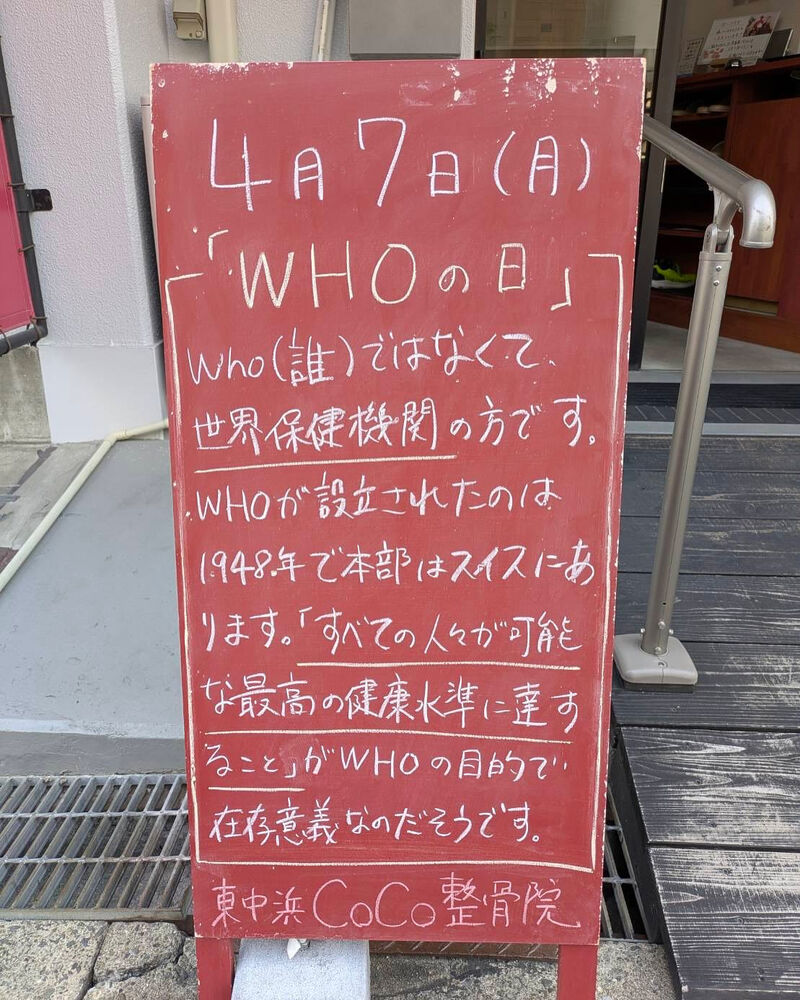 4月7日(月)
「WHOの日」
Who(誰)ではなくて、
世界保健機関の方です。
WHOが設立されたのは
1948年で本部はスイスにあ
ります。「すべての人々が可能
な最高の健康水準に達す
ること」がWHOの目的で
在存意義なのだそうです。
東中浜CoCo整骨院